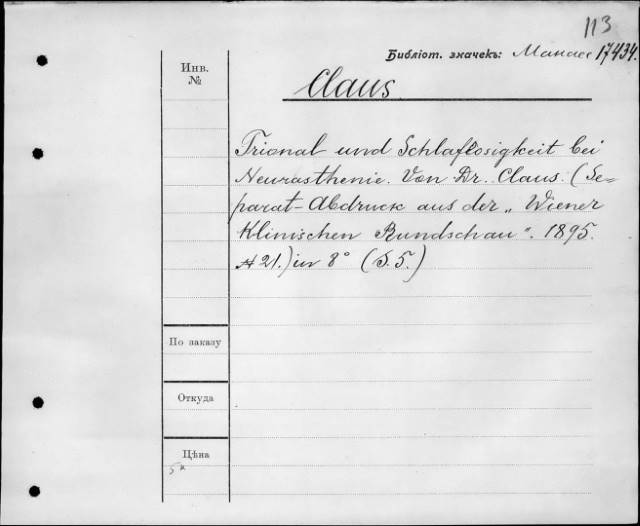 113
Библіот. значекъ: Манасс 17434.
Инв.
№
Claus.
Trional und Schlaflosigkeit bei
Neurasthenie. Von Dr. Claus. (Se-
parat-Abdruck aus der „Wiener
Klinischen Rundschau". 1895.
№ 21.) in 8° (S. 5.)
По заказу
Откуда
Цѣна
5к